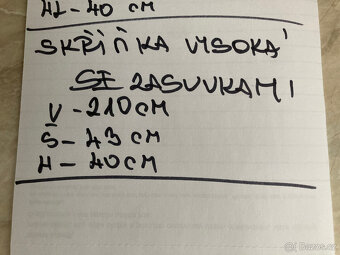 HL - 40 CM
SKŘÍŇKA VYSOKÁ
SE ZASUVKAMI
V - 210 CM
Š - 43 CM
H - 40 CM
Bazoš.cz